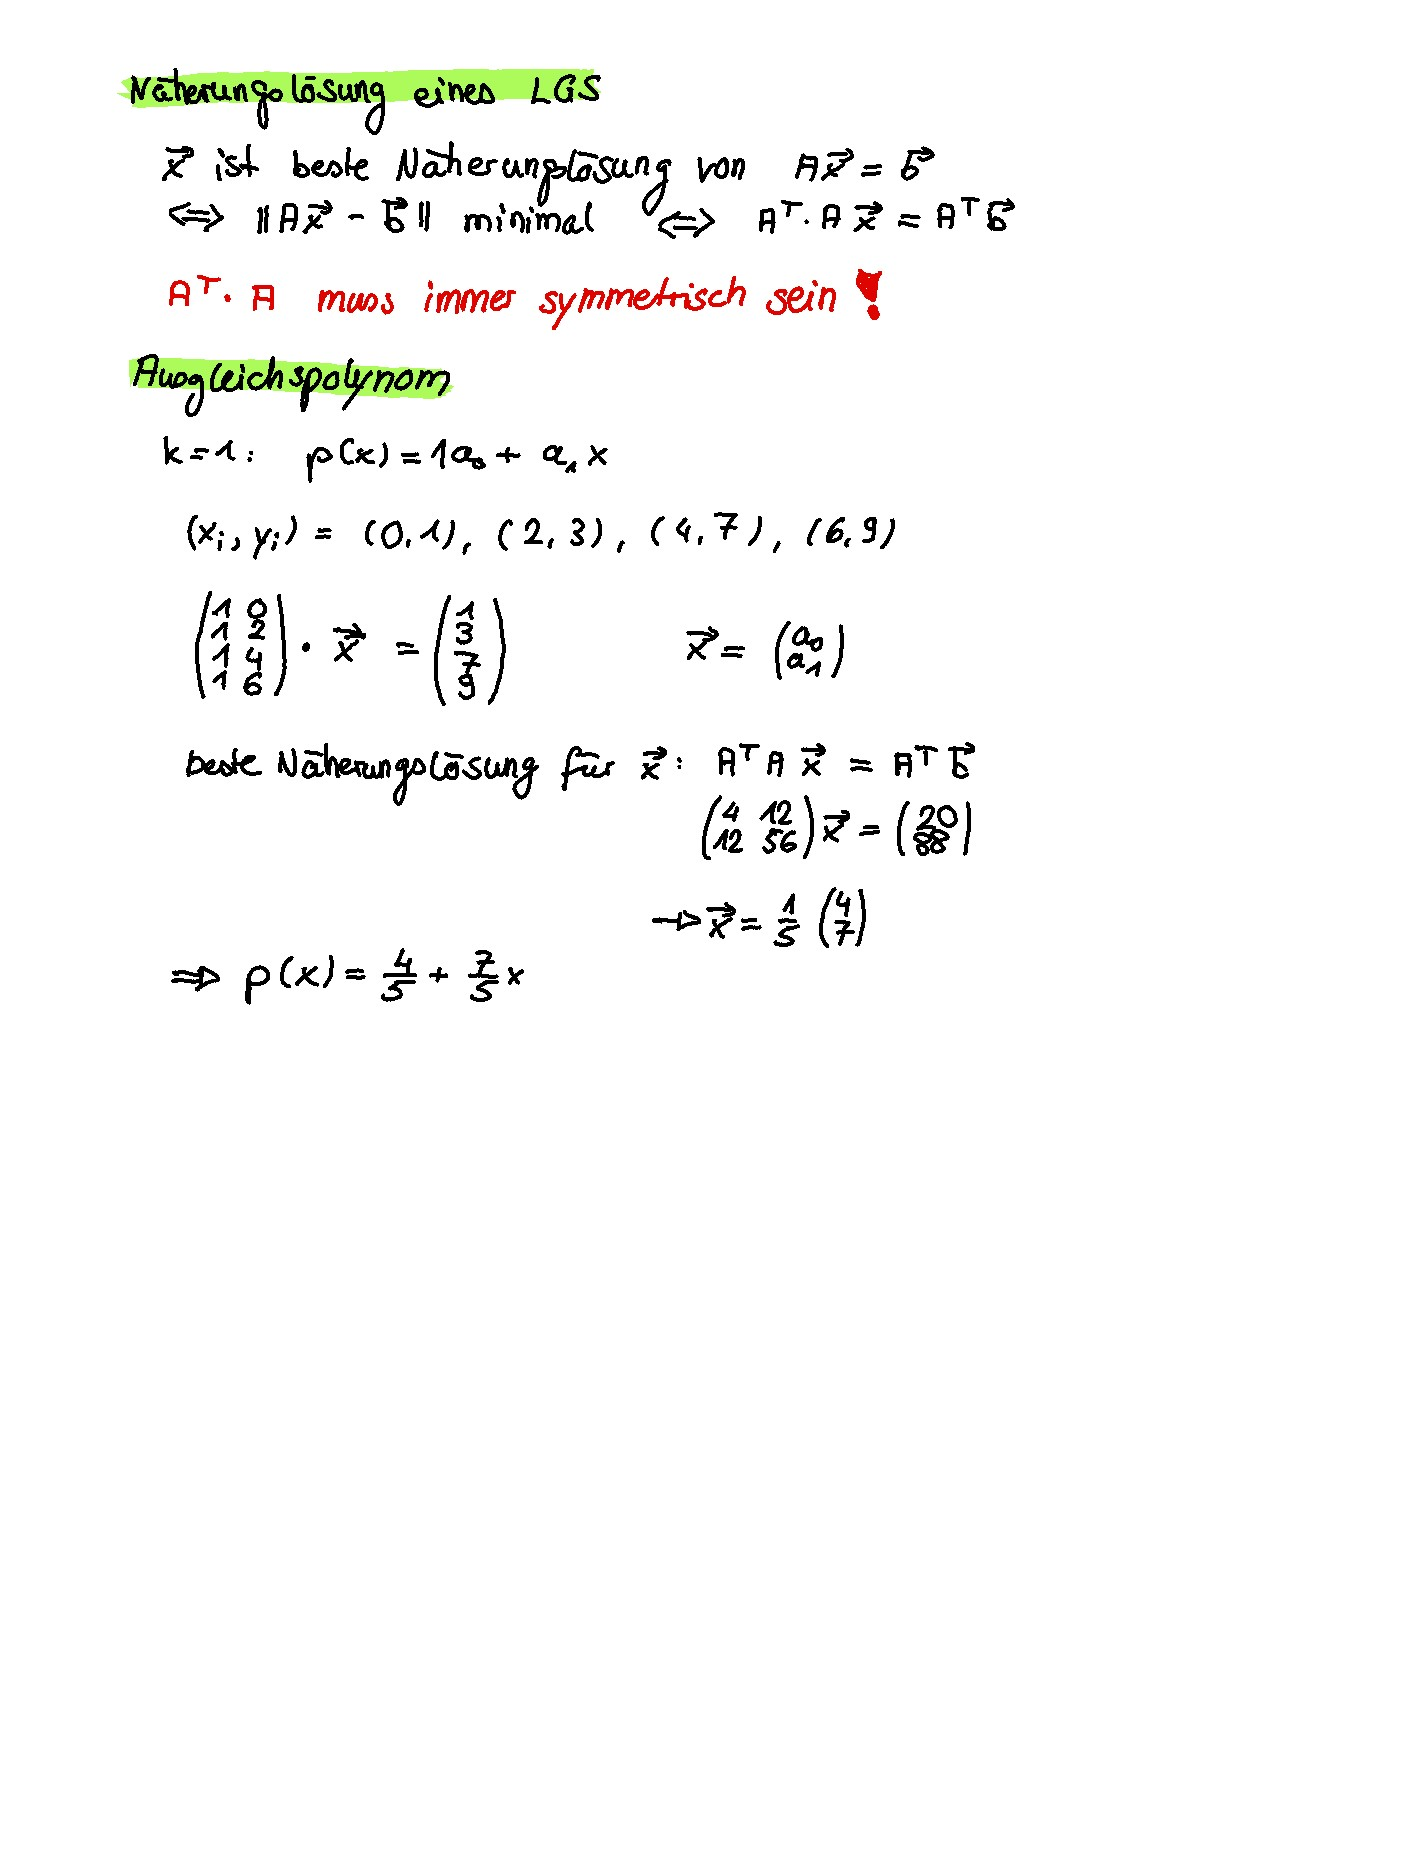 Näherungslösung eines LGS
x⃗ ist beste Näherungslösung von Ax⃗ = b⃗
⟺ ||Ax⃗ - b⃗|| minimal ⟺ Aᵀ · A x⃗ = Aᵀ b⃗
Aᵀ · A muss immer symmetrisch sein !
Ausgleichspolynom
k = 1 : p(x) = 1a₀ + a₁ x
(xᵢ, yᵢ) = (0,1), (2,3), (4,7), (6,9)
(1 0; 1 2; 1 4; 1 6) · x⃗ = (1; 3; 7; 9) x⃗ = (a₀; a₁)
beste Näherungslösung für x⃗ : Aᵀ A x⃗ = Aᵀ b⃗
(4 12; 12 56) x⃗ = (20; 88)
→ x⃗ = 1/5 (4; 7)
⇒ p(x) = 4/5 + 7/5 x